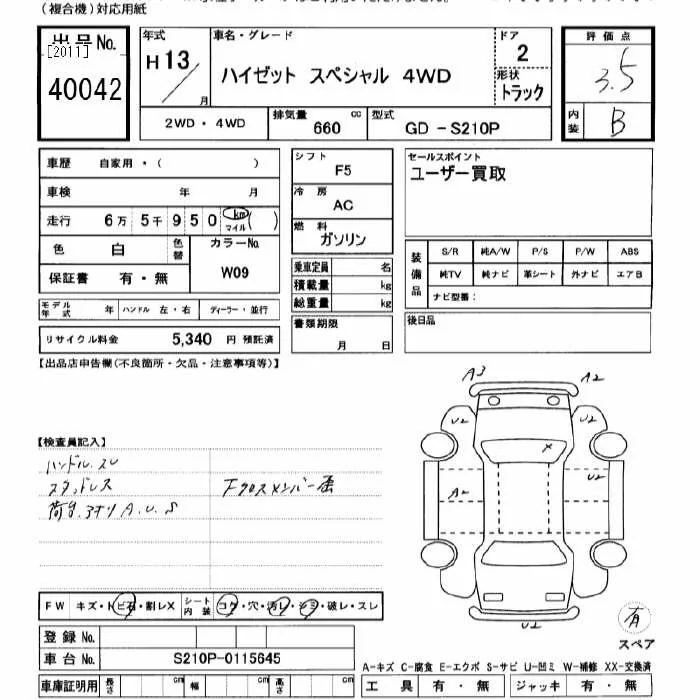 (複合機)対応用紙
出品No.
[2011]
40042
年式
H13/
月
車名・グレード
ハイゼット スペシャル 4WD
ドア
2
形状
トラック
評価点
3.5
内装
B
2WD・4WD
排気量
660
cc
型式
GD-S210P
車歴 自家用・( )
車検 年 月
走行 6万 5千 950 km マイル( )
色 白
色替
カラーNo.
W09
保証書 有・無
モデル年式 年
ハンドル 左・右
ディーラー・並行
リサイクル料金 5,340 円 預託済
シフト
F5
冷房
AC
燃料
ガソリン
乗車定員 名
積載量 kg
総重量 kg
書類期限
月 日
セールスポイント
ユーザー買取
装備品
S/R 純A/W P/S P/W ABS
純TV 純ナビ 革シート 外ナビ エアB
ナビ型番:
後日品
【出品店申告欄(不良箇所・欠品・注意事項等)】
A3
A2
U2
U2
X
A2
U2
U2
【検査員記入】
ハンドル.スレ
スタッドレス
荷台.アオリ A.U.S
Fクロスメンバー歪
FW キズ・トビ石・割レX
シート内装
コゲ・穴・汚レ・シミ・破レ・スレ
有
スペア
登録No.
車台No. S210P-0115645
A-キズ C-腐食 E-エクボ S-サビ U-凹ミ W-補修 XX-交換済
車庫証明用
長さ cm 幅 cm 高さ cm
工具 有・無
ジャッキ 有・無